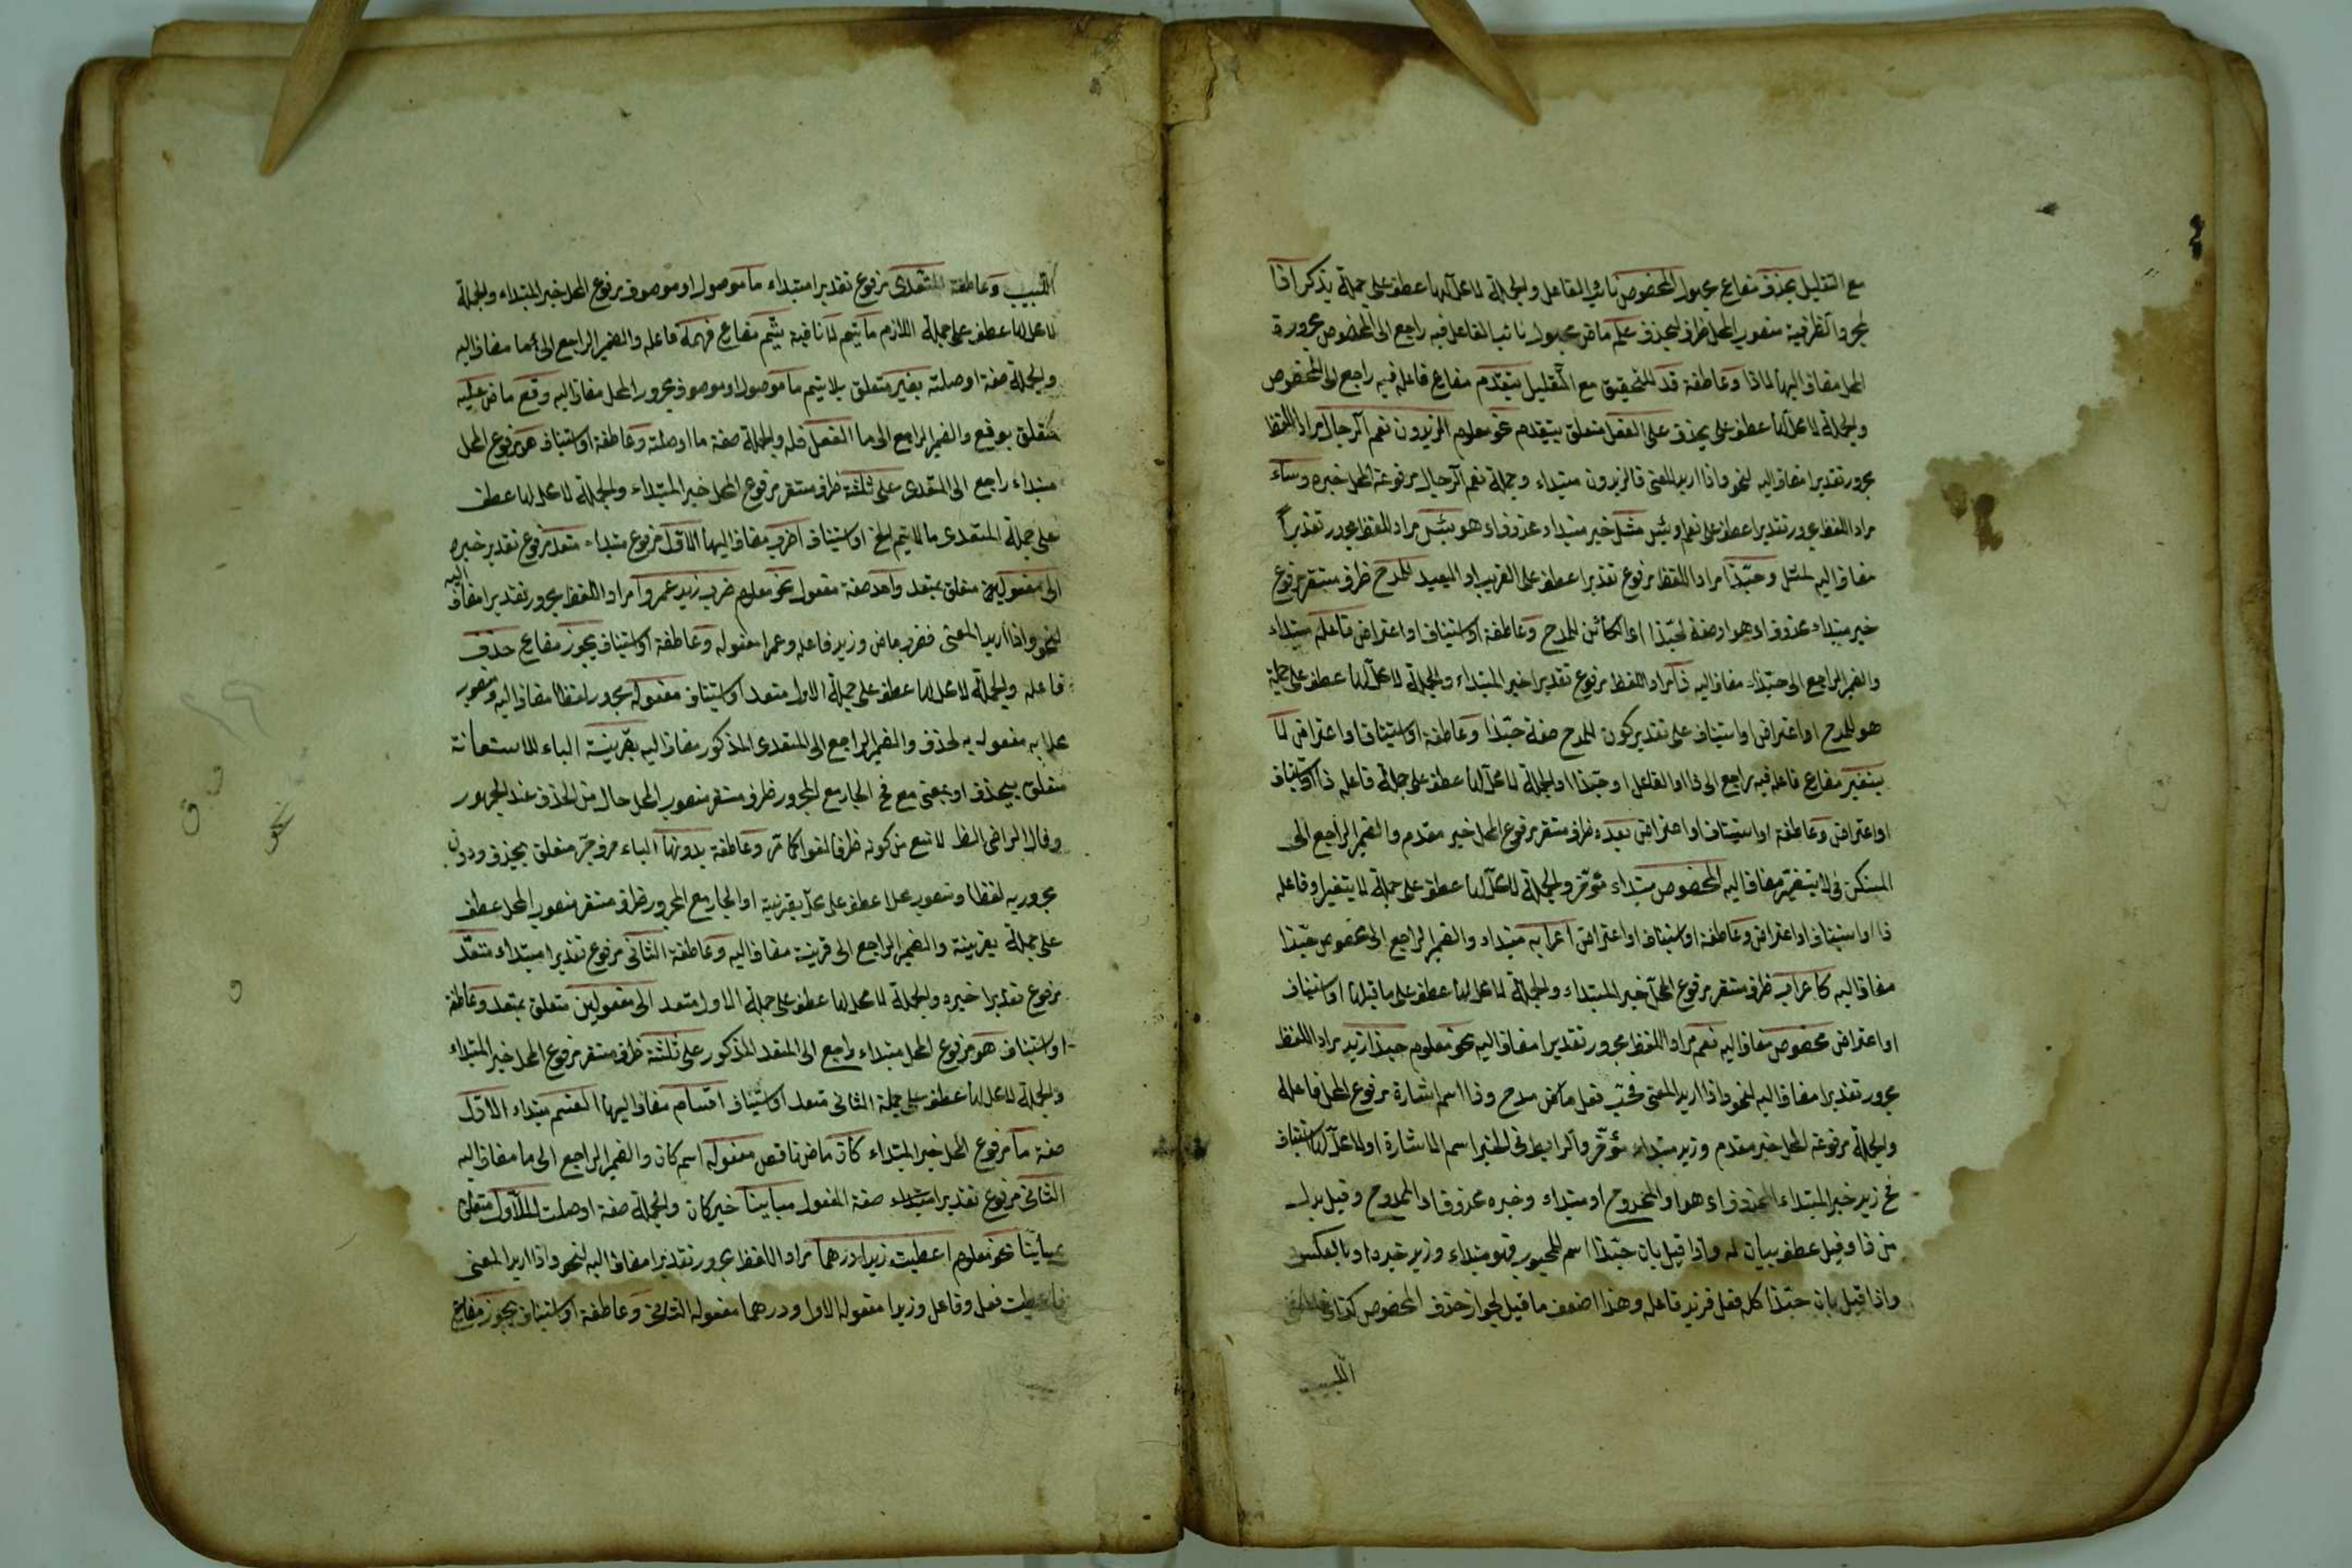 مع التقليل يحذف مضارع مجهول المخصوص نائب الفاعل والجملة لا محل لها عطف على جملة يذكر اذا
لمجرد الظرفية منصوب المحل ظرف ليحذف علم ماض مجهول نائب الفاعل فيه راجع الى المخصوص مجرورة
المحل مضاف اليها لاذا وعاطفة قد للتحقيق مع التقليل يتقدم مضارع فاعله فيه راجع الى المخصوص
والجملة لا محل لها عطف على يحذف على الفعل متعلق بيتقدم نحو معلوم الزيدون نعم الرجال مراد اللفظ
مجرور تقديرا مضاف اليه لنحو واذا اريد المعنى فالزيدون مبتداء وجملة نعم الرجال مرفوعة المحل خبره وساء
مراد اللفظ مجرور تقديرا عطف على نعم او بئس مثل خبر مبتداء محذوف اى هو بئس مراد اللفظ مجرور تقديرا
مضاف اليه لمثل وحبذا مراد اللفظ مرفوع تقديرا عطف على القريب او البعيد للمدح ظرف مستقر مرفوع
خبر مبتداء محذوف اى هو او صفة لحبذا اى الكائن للمدح وعاطفة او استيناف او اعتراض فاعله مبتداء
والضمير الراجع الى حبذا مضاف اليه ذا مراد اللفظ مرفوع تقديرا خبر المبتداء والجملة لا محل لها عطف على جملة
هو للمدح او اعتراض او استيناف على تقدير كون للمدح صفة حبذا وعاطفة او استيناف او اعتراض لا
يتغير مضارع فاعله فيه راجع الى ذا او الفاعل او حبذا والجملة لا محل لها عطف على جملة فاعله ذا او استيناف
او اعتراض وعاطفة او استيناف او اعتراض بعده ظرف مستقر مرفوع المحل خبر مقدم والضمير الراجع الى
المستكن فى لا يتغير مضاف اليه المخصوص مبتداء مؤخر والجملة لا محل لها عطف على جملة لا يتغير او فاعله
ذا او استيناف او اعتراض وعاطفة او استيناف او اعتراض اعرابه مبتداء والضمير الراجع الى مخصوص حبذا
مضاف اليه كاعراب ظرف مستقر مرفوع المحل خبر المبتداء والجملة لا محل لها عطف على ما قبلها او استيناف
او اعتراض مخصوص مضاف اليه نعم مراد اللفظ مجرور تقديرا مضاف اليه نحو معلوم حبذا زيد مراد اللفظ
مجرور تقديرا مضاف اليه لنحو واذا اريد المعنى فحب فعل ماض مدح وذا اسم اشارة مرفوع المحل فاعله
والجملة مرفوعة المحل خبر مقدم وزيد مبتداء مؤخر والرابط فى الخبر اسم الاشارة او لا محل لها استيناف
فح زيد خبر المبتداء المحذوف اى هو او الممدوح او مبتداء وخبره محذوف اى الممدوح وقيل بدل
من ذا وقيل عطف بيان له واذا قيل بان حبذا اسم للمحبوب فهو مبتداء وزيد خبره او بالعكس
واذا قيل بان حبذا كله فعل فزيد فاعله وهذا اضعف ما قيل لجواز حذف المخصوص كذا فى مغنى
اللبيب
اللبيب وعاطفة المتعدى مرفوع تقديرا مبتداء ما موصول او موصوف مرفوع المحل خبر المبتداء والجملة
لا محل لها عطف على جملة اللازم ما يتم لا نافية يتم مضارع فهمه فاعله والضمير الراجع الى ما مضاف اليه
والجملة صفة او صلته بغير متعلق بلا يتم ما موصول او موصوف مجرور المحل مضاف اليه وقع ماض عليه
متعلق بوقع والضمير الراجع الى ما الفعل فاعله والجملة صفة ما او صلته وعاطفة او استيناف هو مرفوع المحل
مبتداء راجع الى المتعدى على ثلثة ظرف مستقر مرفوع المحل خبر المبتداء والجملة لا محل لها عطف
على جملة المتعدى ما لا يتم الخ او استيناف اضرب مضاف اليها الاول مرفوع مبتداء متعد مرفوع تقدير خبره
الى مفعولين متعلق بمتعد واحد صفة مفعول نحو معلوم ضرب زيد عمروا مراد اللفظ مجرور تقديرا مضاف اليه
لنحو واذا اريد المعنى فضرب ماض وزيد فاعله وعمرا مفعوله وعاطفة او استيناف يجوز مضارع حذف
فاعله والجملة لا محل لها عطف على جملة الاول متعد او استيناف مفعوله مجرور لفظا مضاف اليه ومنصوب
محلا به مفعول به لحذف والضمير الراجع الى المتعدى المذكور مضاف اليه بقرينة الباء للاستعانة
متعلق بيحذف او بمعنى مع فح الجار مع المجرور ظرف مستقر منصوب المحل حال من الحذف عند الجمهور
وقال الراضى الظ لا تبع من كونه ظرفا لغوا كما مر وعاطفة بدونها الباء حرف جر متعلق بحذف ودون
مجرور به لفظا ومنصوب محلا عطف على محل بقرينة او الجار مع المجرور ظرف مستقر منصوب المحل عطف
على جملة بقرينة والضمير الراجع الى قرينة مضاف اليه وعاطفة الثانى مرفوع تقديرا مبتداء متعد
مرفوع تقديرا خبره والجملة لا محل لها عطف على جملة الاول متعد الى مفعولين متعلق بمتعد وعاطفة
او استيناف هو مرفوع المحل مبتداء راجع الى المتعد المذكور على ثلثة ظرف مستقر مرفوع المحل خبر المبتداء
والجملة لا محل لها عطف على جملة الثانى متعد او استيناف اقسام مضاف اليها القسم مبتداء الاول
صفة ما مرفوع المحل خبر المبتداء كان ماض ناقص مفعوله اسم كان والضمير الراجع الى ما مضاف اليه
الثانى مرفوع تقديرا مبتداء صفة المفعول مباينا خبر كان والجملة صفة او صلت للاول متعلق
بمباينا نحو معلوم اعطيت زيدا درهما مراد اللفظ مجرور تقديرا مضاف اليه لنحو واذا اريد المعنى
فاعطيت فعل وفاعل وزيدا مفعوله الاول ودرهما مفعوله الثانى وعاطفة او استيناف يجوز مضارع